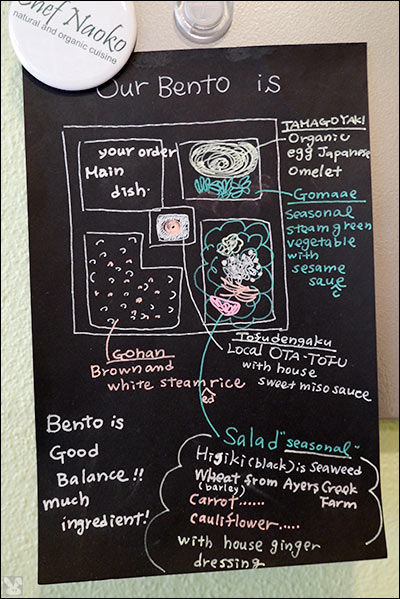 Chef Naoko
natural and organic cuisine
Our Bento is
your order
Main
dish.
TAMAGOYAKI
Organic
egg Japanese
Omelet
Gomaae
seasonal
steam green
vegetable
with
sesame
sauce
Tofudengaku
Local OTA-TOFU
with house
sweet miso sauce
Gohan
Brown and
white steamed rice
Bento is
Good
Balance!!
much
ingredient!
Salad "seasonal"
Higiki (black) is seaweed
Wheat from Ayers Creek
(barley) Farm
Carrot......
cauliflower.....
with house ginger
dressing